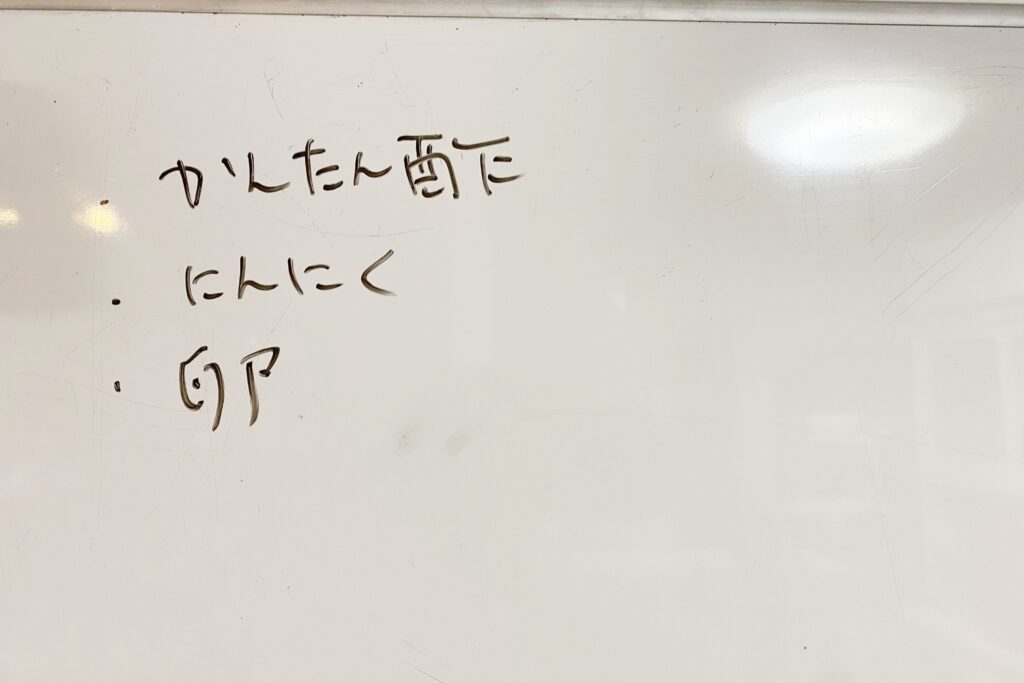 ・かんたん酢
・にんにく
・卵